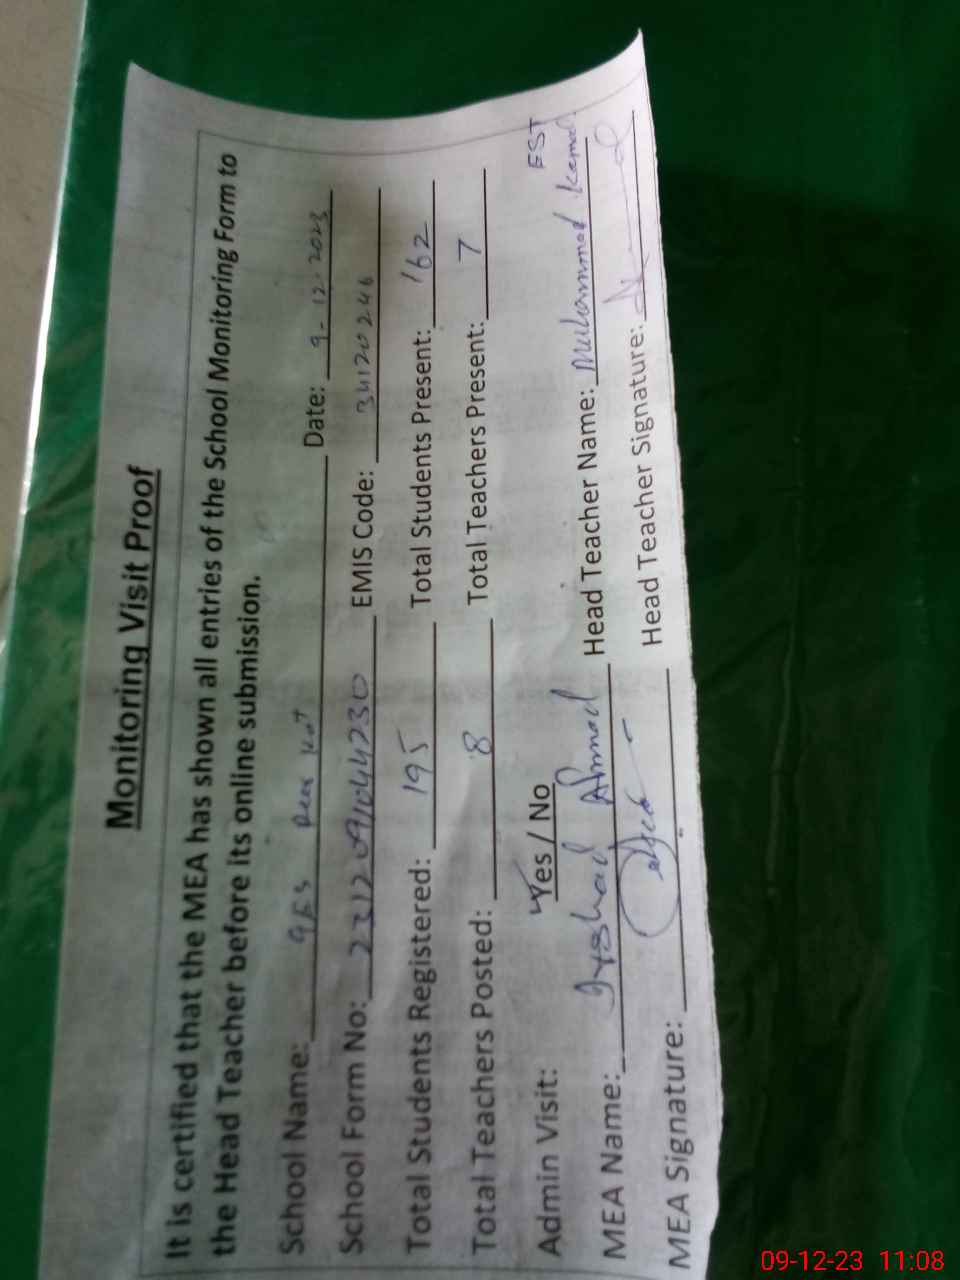 Monitoring Visit Proof
It is certified that the MEA has shown all entries of the School Monitoring Form to
the Head Teacher before its online submission.
School Name: GES Deen Kot Date: 9-12-2023
School Form No: EMIS Code: 34120246
Total Students Registered: 195 Total Students Present: 162
Total Teachers Posted: 8 Total Teachers Present: 7
Admin Visit: Yes / No EST
MEA Name: Irshad Ahmad Head Teacher Name: Muhammad Kamal
MEA Signature: Head Teacher Signature:
09-12-23 11:08